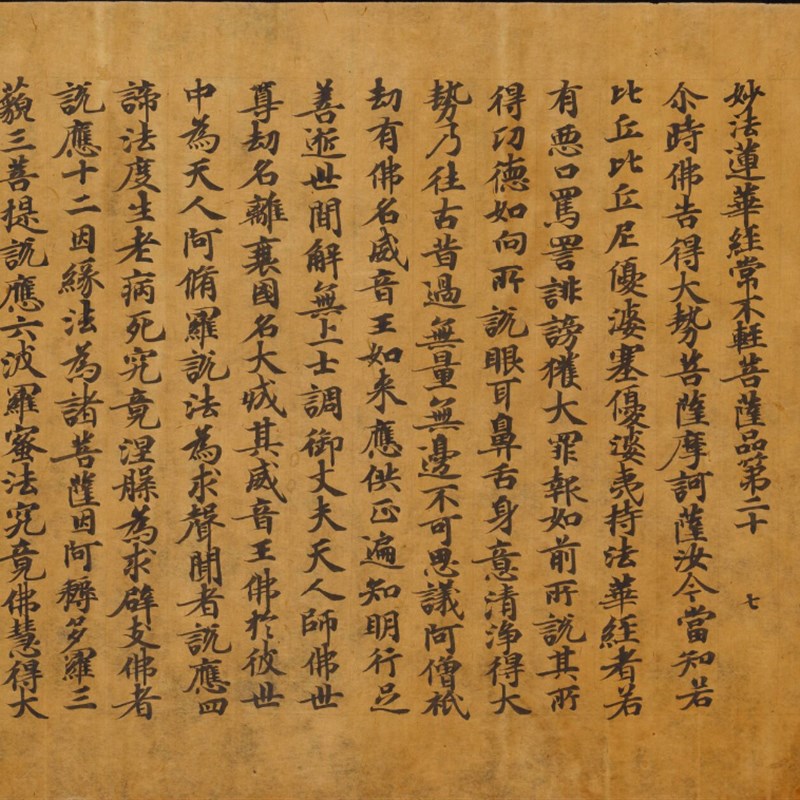 妙法蓮華経常不軽菩薩品第二十 七
尒時佛告得大勢菩薩摩訶薩汝今當知若
比丘比丘尼優婆塞優婆夷持法華経者若
有悪口罵詈誹謗獲大罪報如前所說其所
得功德如向所說眼耳鼻舌身意清淨得大
勢乃往古昔過無量無邊不可思議阿僧祇
劫有佛名威音王如来應供正遍知明行足
善逝世間解無上士調御丈夫天人師佛世
尊劫名離衰國名大成其威音王佛於彼世
中為天人阿脩羅說法為求聲聞者說應四
諦法度生老病死究竟涅槃為求辟支佛者
說應十二因緣法為諸菩薩因阿耨多羅三
藐三菩提說應六波羅蜜法究竟佛慧得大